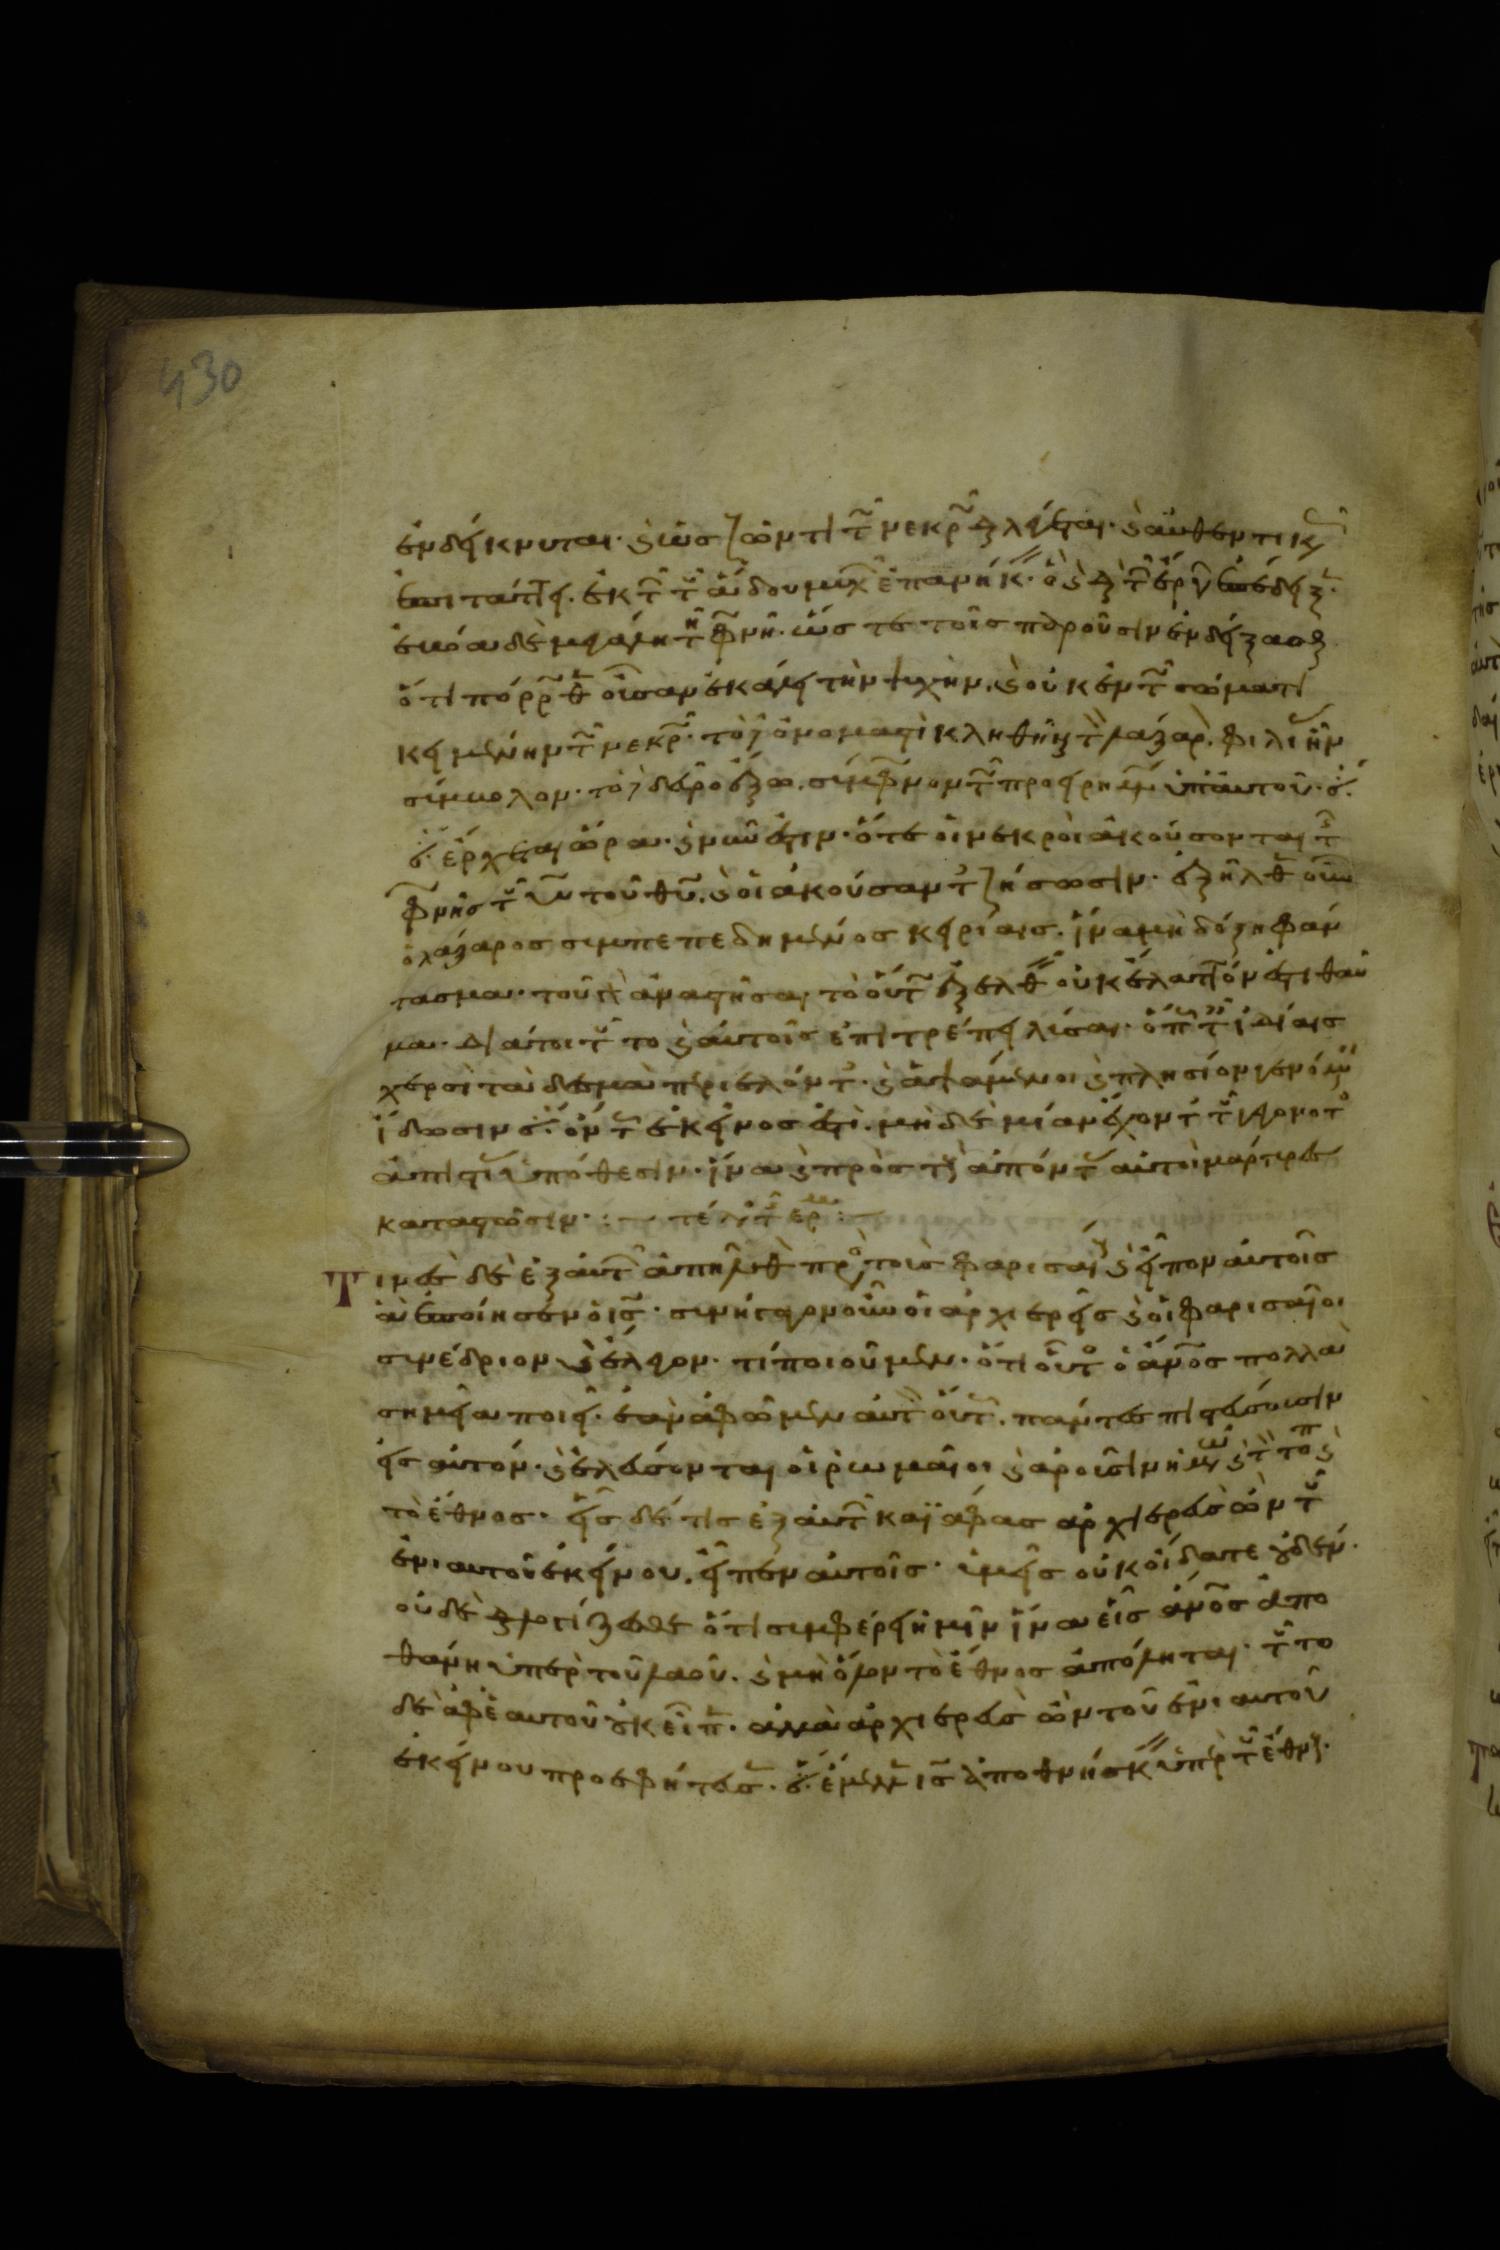 430
ἐνδείκνυται· καὶ ὡς ζῶντι τῷ νεκρῷ διαλέγεται· καὶ αὐθεντικῶς
ἐπιτάττει. ἐκ τῶν τοῦ ἅδου μυχῶν ἐπανήκειν· ὃ καὶ διὰ τῶν ἔργων ἐπέδειξεν·
ἐκραύασε μεγάλη τῇ φωνῇ· ὥστε τοῖς παροῦσιν ἐνδείξασθαι
ὅτι πόρρωθεν οὖσαν ἐκάλει τὴν ψυχὴν. καὶ οὐκ ἐν τῷ σώματι
κειμένην τῷ νεκρῷ· τὸ γὰρ ὀνομαστὶ κληθῆναι τὸν λάζαρον. φιλικὸν ἦν
σύμβολον· τὸ δὲ δεῦρο ἔξω. σύμφωνον τῷ προειρημένῳ ὑπ' αὐτοῦ·
ἔρχεται ὥρα· καὶ νῦν ἐστιν· ὅτε οἱ νεκροὶ ἀκούσονται τῆς
φωνῆς τοῦ υἱοῦ τοῦ θυ. καὶ οἱ ἀκούσαντες ζήσωσιν· ἐξῆλθεν οὖν
ὁ λάζαρος συμπεπεδημένος κειρίαις. ἵνα μὴ δόξη φάν
τασμα· τοῦ δὲ ἀναστῆσαι τὸ οὕτως ἐξελθεῖν οὐκ ἔλαττόν ἐστι θαῦ
μα· διά τοι τοῦτο καὶ αὐτοῖς ἐπιτρέπει λύσαι· ὅπως ταῖς ἰδίαις
χερσὶ τὰ δεσμὰ περιελόντες· καὶ ἁψάμενοι καὶ πλησίον γενόμενοι
ἴδωσιν ὄντως ἐκεῖνος ἐστὶ. μηδεμίαν ἔχοντες τοῦ γεγονότος
ἀπιστίας ὑπόθεσιν· ἵνα καὶ πρὸς τοὺς ἀπόντας αὐτοὶ μάρτυρες
καταστῶσιν· :— τέλος τοῦ
Τινὲς δὲ ἐξ αὐτῶν ἀπῆλθον πρὸς τοὺς φαρισαίους καὶ εἶπον αὐτοῖς
ἃ ἐποίησεν ὁ ις· συνήγαγον οὖν οἱ ἀρχιερεῖς καὶ οἱ φαρισαῖοι
συνέδριον καὶ ἔλεγον· τί ποιοῦμεν· ὅτι οὗτος ὁ ἄνος πολλὰ
σημεῖα ποιεῖ· ἐὰν ἀφῶμεν αὐτὸν οὕτως. πάντες πιστεύσουσιν
εἰς αὐτόν· καὶ ἐλεύσονται οἱ ῥωμαῖοι καὶ ἀροῦσιν ἡμῶν καὶ τὸν τόπον καὶ
τὸ ἔθνος· εἷς δέ τις ἐξ αὐτῶν καϊάφας ἀρχιερεὺς ὢν τοῦ
ἐνιαυτοῦ ἐκείνου. εἶπεν αὐτοῖς· ὑμεῖς οὐκ οἴδατε οὐδέν·
οὐδὲ διαλογίζεσθε ὅτι συμφέρει ἡμῖν ἵνα εἷς ἄνος ἀπο
θάνη ὑπὲρ τοῦ λαοῦ. καὶ μὴ ὅλον τὸ ἔθνος ἀπόληται· τοῦτο
δὲ ἀφ' ἑαυτοῦ οὐκ εἶπεν· ἀλλὰ ἀρχιερεὺς ὢν τοῦ ἐνιαυτοῦ
ἐκείνου προεφήτευσεν· ὅτι ἔμελλεν ις ἀποθνήσκειν ὑπὲρ τοῦ ἔθνους·